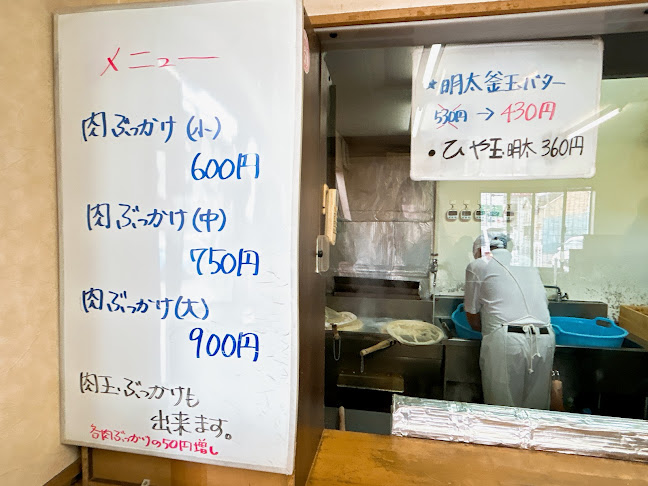 メニュー
肉ぶっかけ(小)
600円
肉ぶっかけ(中)
750円
肉ぶっかけ(大)
900円
肉玉ぶっかけも
出来ます。
各肉ぶっかけの50円増し
★明太釜玉バター
530円→430円
●ひや玉明太360円